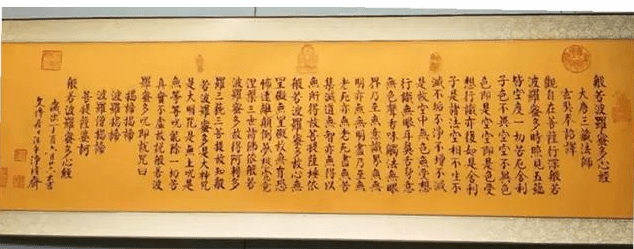 般若波羅蜜多心經
大唐三藏法師
玄奘奉詔譯
觀自在菩薩行深般若
波羅蜜多時照見五蘊
皆空度一切苦厄舍利
子色不異空空不異色
色即是空空即是色受
想行識亦復如是舍利
子是諸法空相不生不
滅不垢不淨不增不減
是故空中無色無受想
行識無眼耳鼻舌身意
無色聲香味觸法無眼
界乃至無意識界無無
明亦無無明盡乃至無
老死亦無老死盡無苦
集滅道無智亦無得以
無所得故菩提薩埵依
般若波羅蜜多故心無
罣礙無罣礙故無有恐
怖遠離顛倒夢想究竟
涅槃三世諸佛依般若
波羅蜜多故得阿耨多
羅三藐三菩提故知般
若波羅蜜多是大神呪
是大明呪是無上呪是
無等等呪能除一切苦
真實不虛故說般若波
羅蜜多呪即說呪曰
揭諦揭諦
波羅揭諦
波羅僧揭諦
菩提薩婆訶
般若波羅蜜多心經